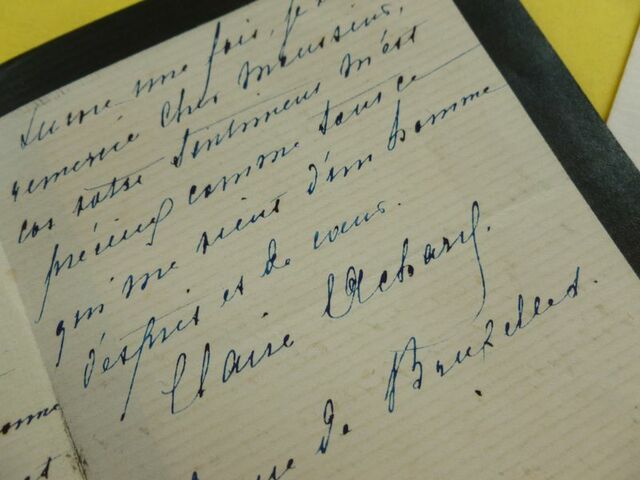 une fois, je
remercie cher Monsieur,
car votre sentiment m'est
précieux comme tout ce
qui me vient d'un homme
d'esprit et de cœur.
Claire Achard.
rue de Bruxelles.